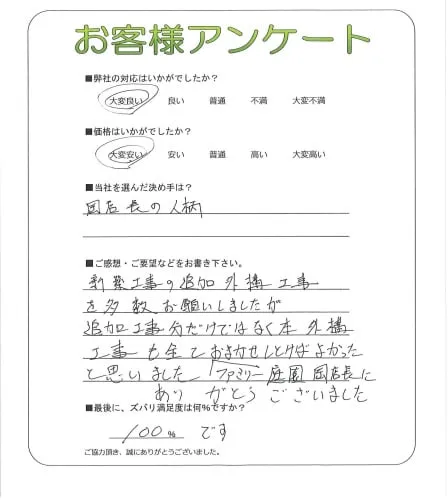 お客様アンケート
■弊社の対応はいかがでしたか？
大変良い 良い 普通 不満 大変不満
■価格はいかがでしたか？
大変安い 安い 普通 高い 大変高い
■当社を選んだ決め手は？
岡店長の人柄
■ご感想・ご要望などをお書き下さい。
新築工事の追加外構工事
を多数お願いしましたが
追加工事分だけではなく本外構
工事も全ておまかせしとけばよかった
と思いました。ファミリー庭園 岡店長に
ありがとうございました
■最後に、ズバリ満足度は何％ですか？
100％です
ご協力頂き、誠にありがとうございました。